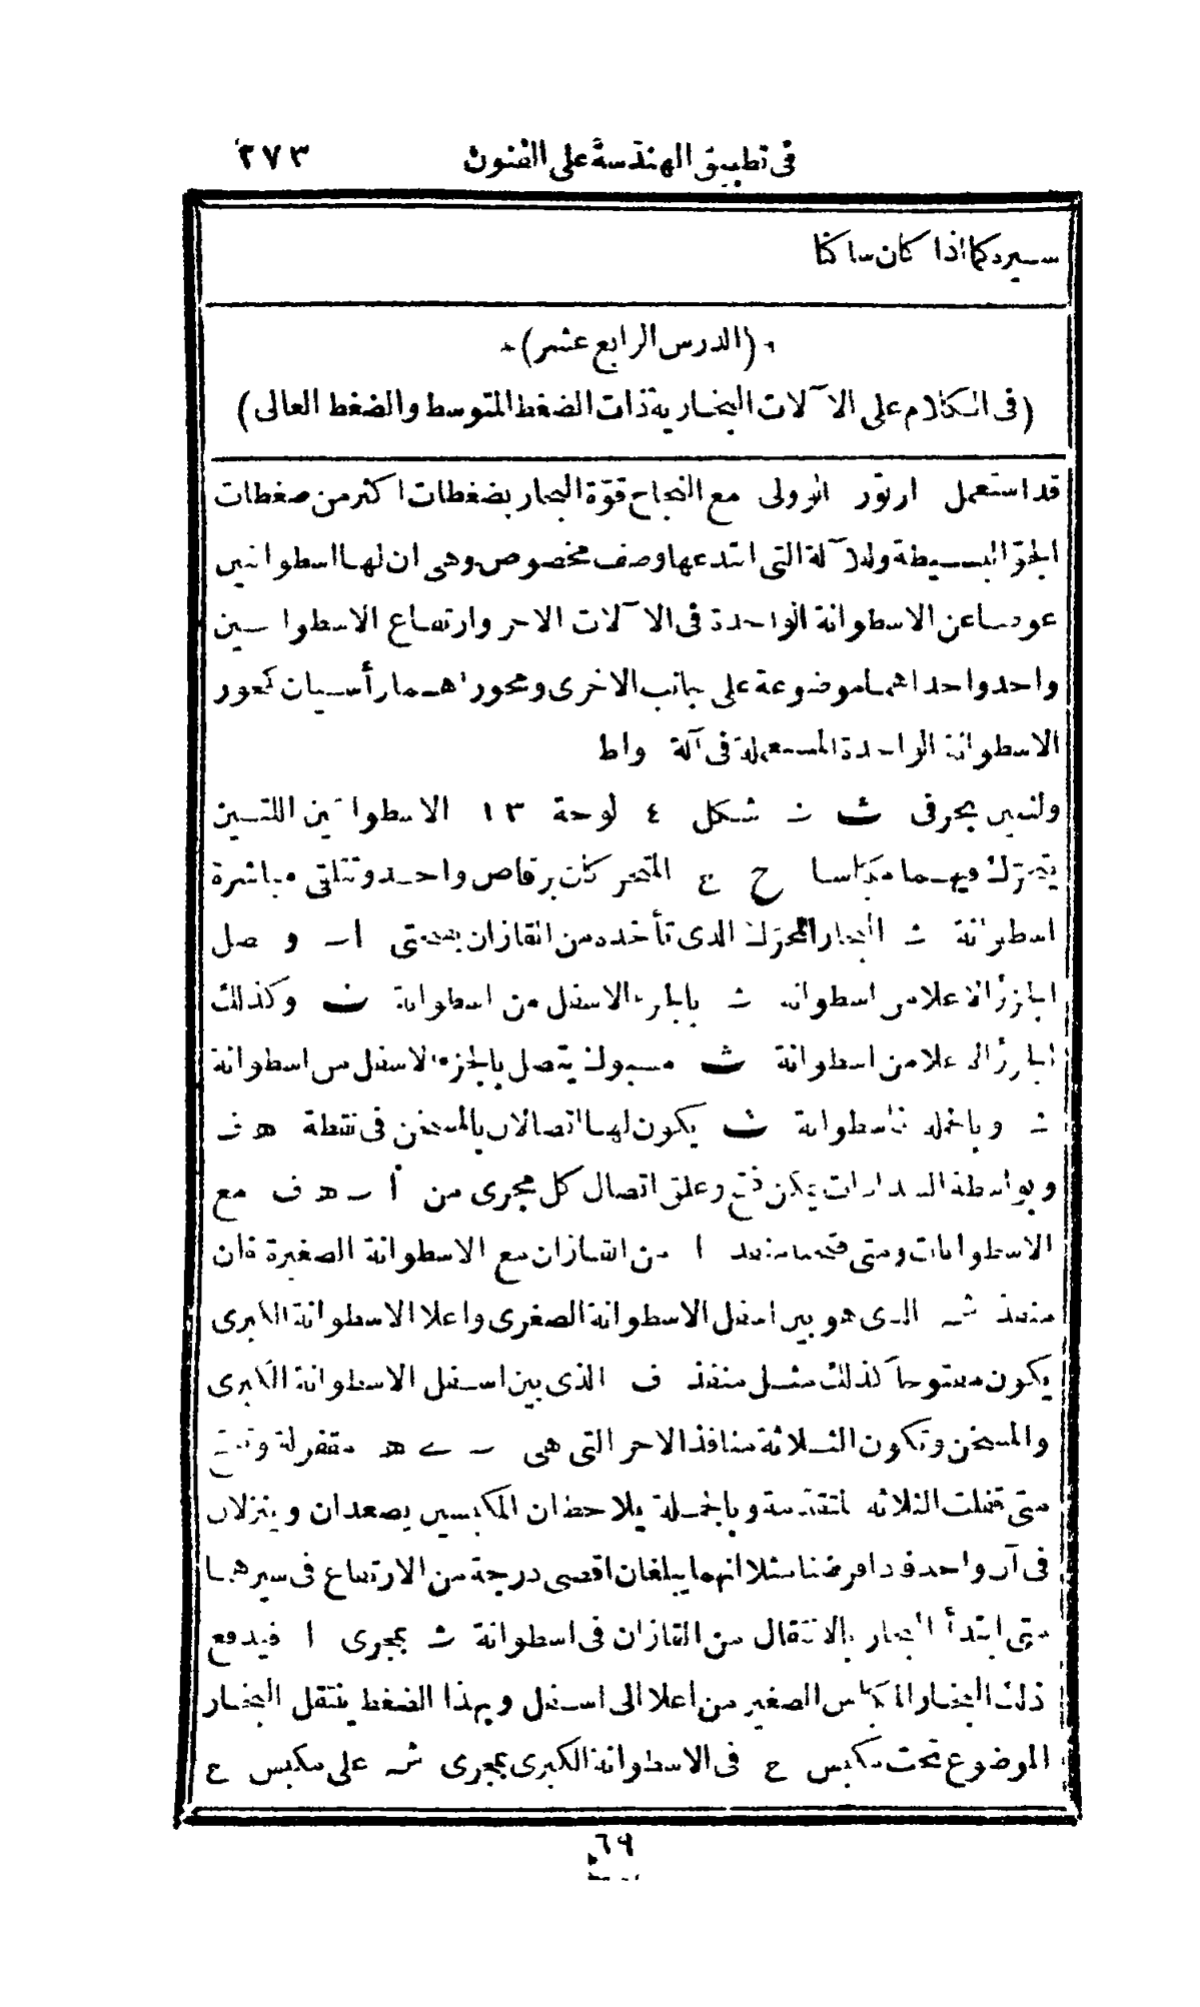 فى تطبيق الهندسة على الفنون ٢٧٣
سيره كما اذا كان ساكنا
(الدرس الرابع عشر)
(فى الكلام على الآلات البخارية ذات الضغط المتوسط والضغط العالى)
قد استعمل ارتور الوولى مع النجاح قوّة البخار بضغطات اكثر من ضغطات
الجوّ البسيطة وللآلة التى ابتدعها وصف مخصوص وهى ان لها اسطوانتين
عوضا عن الاسطوانة الواحدة فى الآلات الاخر وارتفاع الاسطوانتين
واحد واحداهما موضوعة على جانب الاخرى ومحوراهما رأسيان كمحور
الاسطوانة الواحدة المستعملة فى آلة واط
ولنشر بحرفى ث ث شكل ٤ لوحة ١٣ الاسطوانتين اللتين
يتحرّك فيهما مكباسا ح ع المتحركان برقاص واحد وتتلقى مباشرة
اسطوانة ث البخار المحرّك الذى تأخذه من القازان بفتحتى ا ب و صل
الجزء الاعلا من اسطوانة ث بالجزء الاسفل من اسطوانة ث وكذلك
الجزء الاعلا من اسطوانة ث مسبوك يتصل بالجزء الاسفل من اسطوانة
ث وبالجملة فاسطوانة ث يكون لها اتصالان بالمسخن فى نقطة ه ف
وبواسطة السدادات يمكن فتح وغلق اتصال كل مجرى من أ ب ه ف مع
الاسطوانات ومتى فتحنا منفذ ا من القازان مع الاسطوانة الصغيرة فان
منفذ ش الذى هو بين اسفل الاسطوانة الصغرى واعلا الاسطوانة الكبرى
يكون مفتوحا كذلك مثل منفذ ف الذى بين اسفل الاسطوانة الكبرى
والمسخن وتكون الثلاثة منافذ الاخر التى هى ب ے ه مقفولة وتفتح
متى قفلت الثلاثة المتقدّمة وبالجملة يلاحظ ان المكبسين يصعدان وينزلان
فى آن واحد فاذا فرضنا مثلا انهما يبلغان اقصى درجة من الارتفاع فى سيرهما
متى ابتدأ البخار بالانتقال من القازان فى اسطوانة ث بمجرى ا فيدفع
ذلك البخار المكباس الصغير من اعلا الى اسفل وبهذا الضغط ينتقل البخار
الموضوع تحت مكبس ع فى الاسطوانة الكبرى بمجرى ش على مكبس ع
٦٩